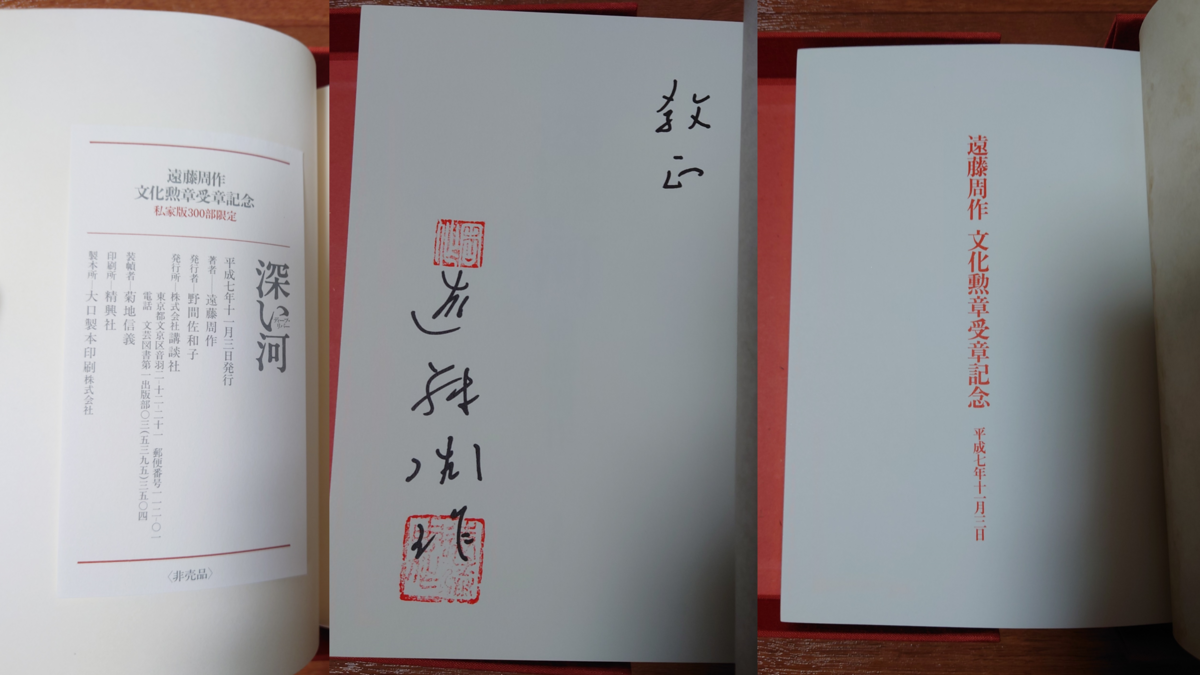 遠藤周作
文化勲章受章記念
私家版300部限定
深い河
平成七年十一月三日発行
著者―遠藤周作
発行者―野間佐和子
発行所―株式会社講談社
東京都文京区音羽二-十二-二十一 郵便番号一一二-〇一
電話 文芸図書第一出版部〇三(五三九五)三五〇四
装幀者―菊地信義
印刷所―精興社
製本所―大口製本印刷株式会社
〈非売品〉
教正
遠藤周作
遠藤周作 文化勲章受章記念 平成七年十一月三日